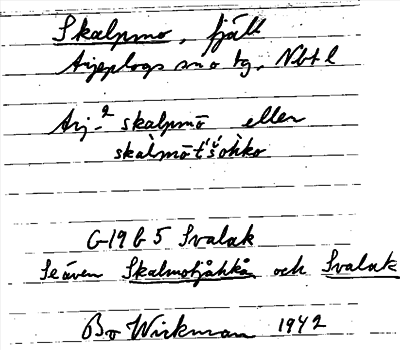 Skalpmo, fjäll
Arjeplogs sn o tg, Nbt l
Arj-2 skalpmō eller
skàlmōt's'ǫhko
G-19 b 5 Svalak
Se även Skalmotjåhkå och Svalak
Bo Wickman 1942